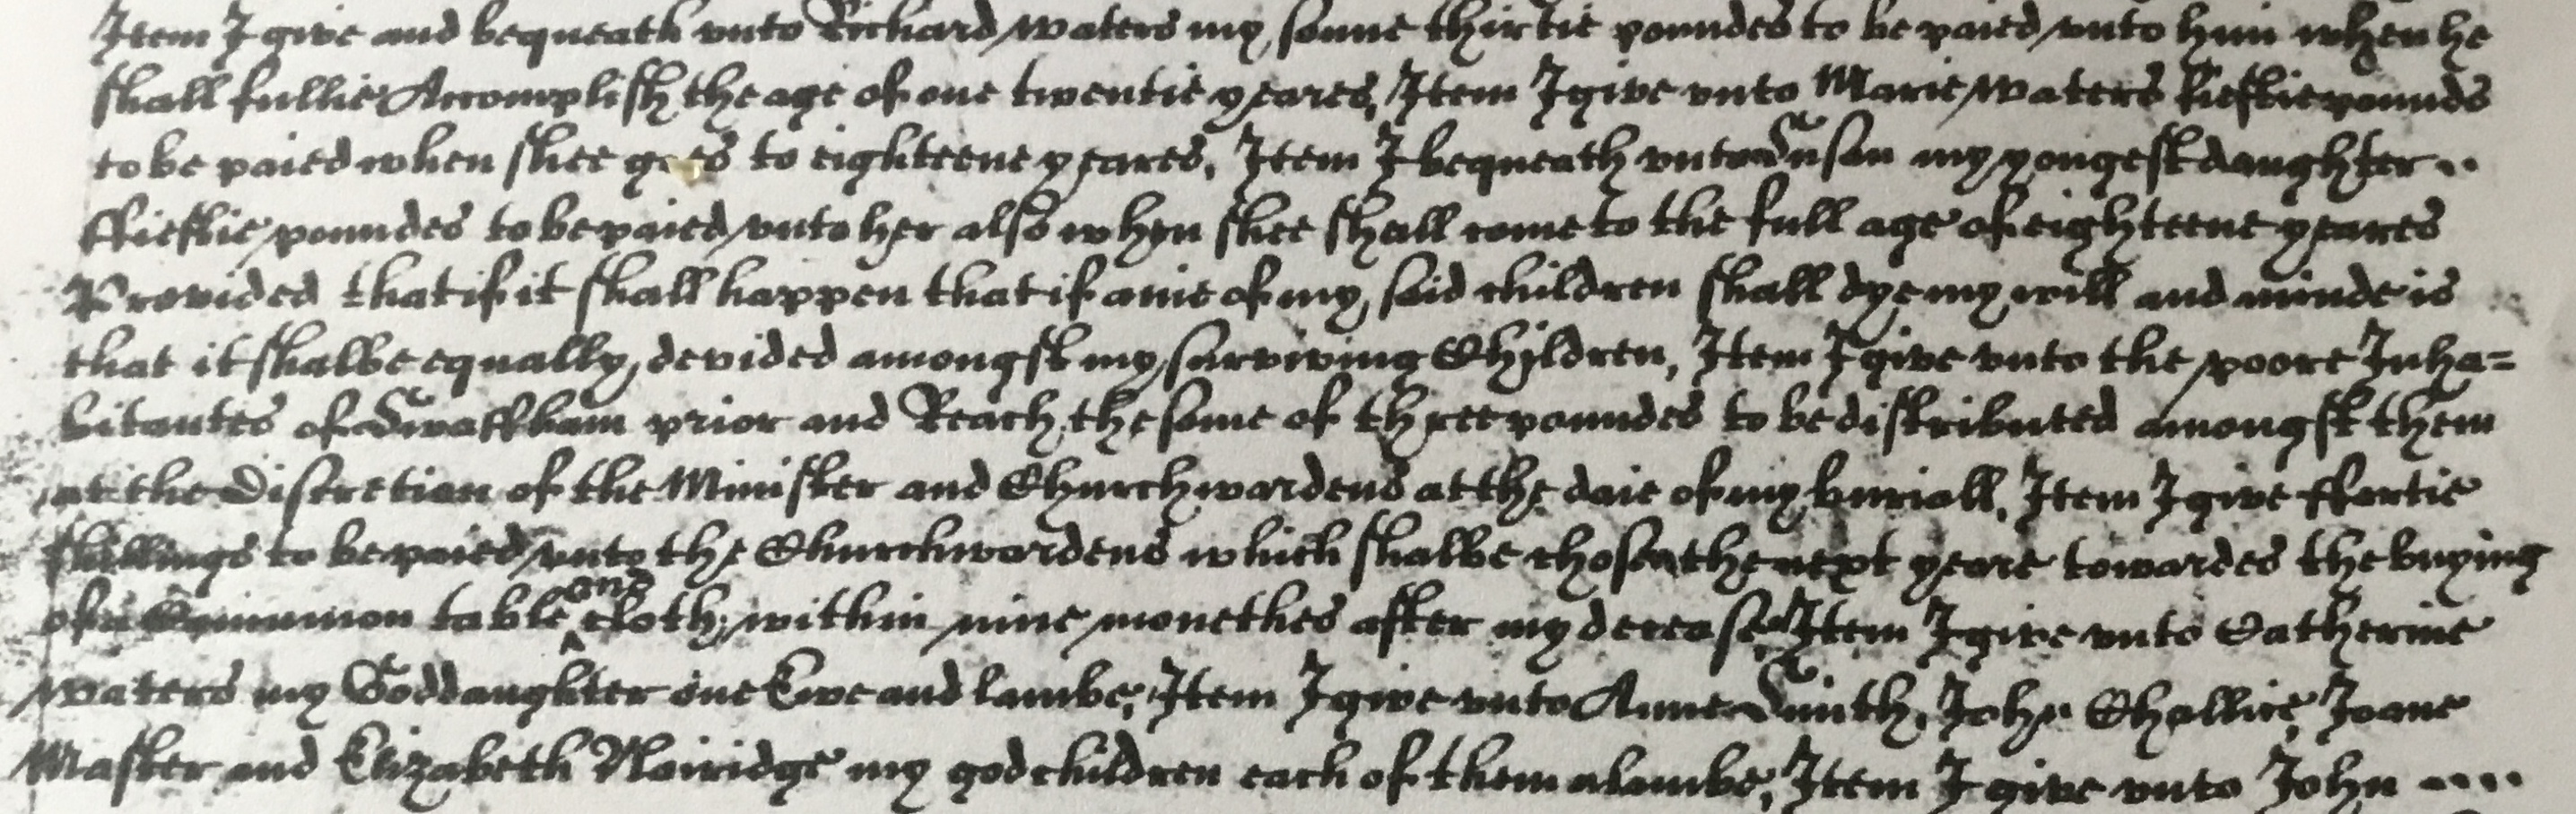 Item I give and bequeath unto Richard Waters my sonne thirtie poundes to be paied unto him when he
shall fullie Accomplish the age of one twentie yeares, Item I give unto Marie Waters fieftie pounds
to be paied when shee g es to eighteene yeares, Item I bequeath unto Susan my yongest daughter ..
ffieftie poundes to be paied unto her also when shee shall come to the full age of eighteene yeares
Provided that if it shall happen that if anie of my said children shall dye my will and minde is
that it shalbe equally devided amongst my surviving Children, Item I give unto the poore Inha=
bitantes of Swaffham prior and Reach the some of three poundes to be distributed amongst them
at the Discretion of the Minister and Churchwardens at the daie of my buriall, Item I give ffortie
shillings to be paied unto the Churchwardens which shalbe chosen the next yeare towardes the buying
of a Communion table and cloth, within nine monethes after my decease, Item I give unto Catherine
Waters my Goddaughter one Ewe and lambe, Item I give unto Anne Smith, John Challice, Joane
Master and Elizabeth my godchildren each of them a lambe, Item I give unto John ....